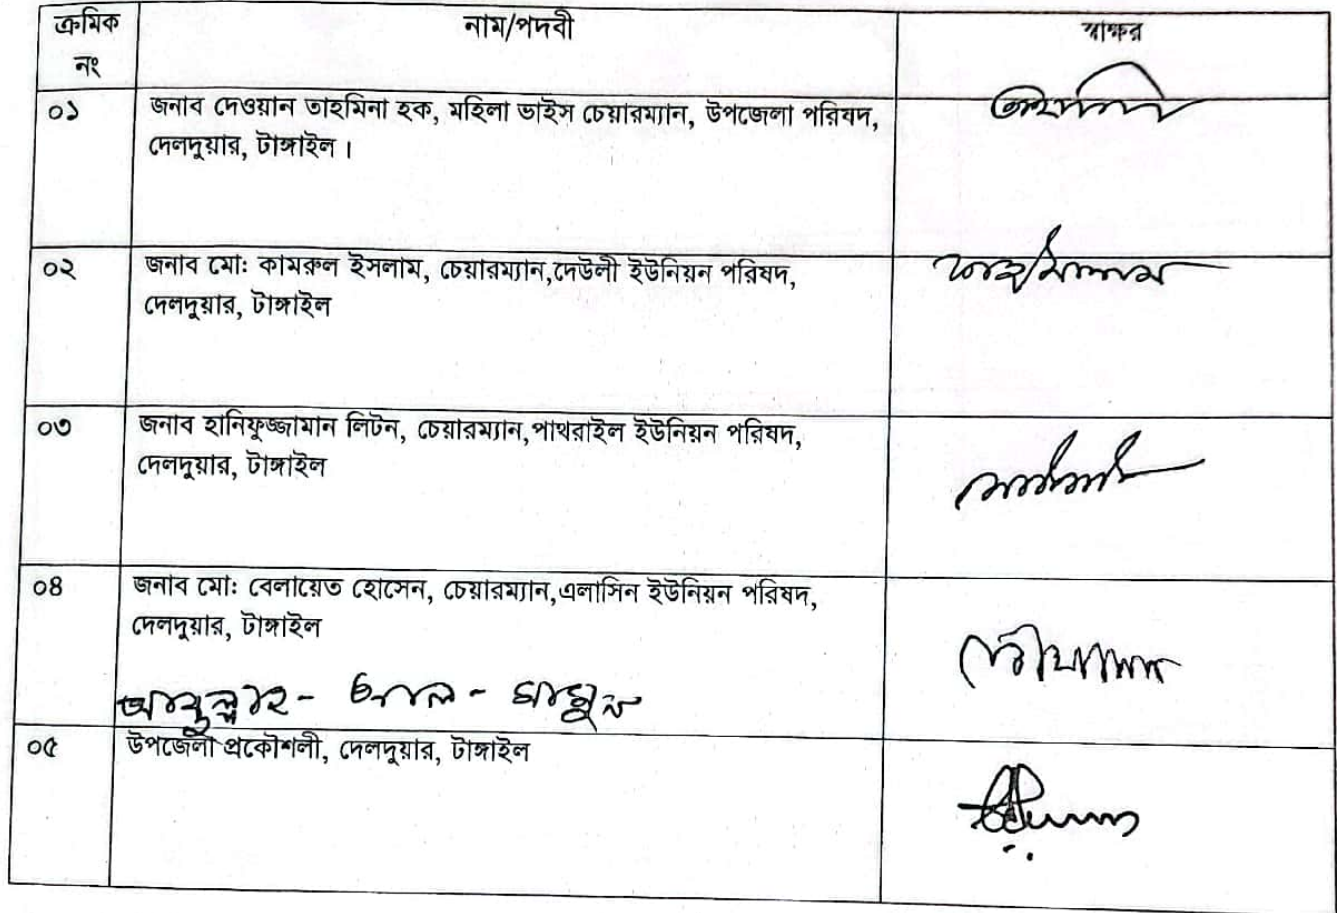 ক্রমিক নাম/পদবী স্বাক্ষর
নং
০১ জনাব দেওয়ান তাহমিনা হক, মহিলা ভাইস চেয়ারম্যান, উপজেলা পরিষদ,
দেলদুয়ার, টাঙ্গাইল ।
০২ জনাব মো: কামরুল ইসলাম, চেয়ারম্যান,দেউলী ইউনিয়ন পরিষদ,
দেলদুয়ার, টাঙ্গাইল
০৩ জনাব হানিফুজ্জামান লিটন, চেয়ারম্যান,পাথরাইল ইউনিয়ন পরিষদ,
দেলদুয়ার, টাঙ্গাইল
০৪ জনাব মো: বেলায়েত হোসেন, চেয়ারম্যান,এলাসিন ইউনিয়ন পরিষদ,
দেলদুয়ার, টাঙ্গাইল
আব্দুল্লাহ- আল- মামুন
০৫ উপজেলা প্রকৌশলী, দেলদুয়ার, টাঙ্গাইল